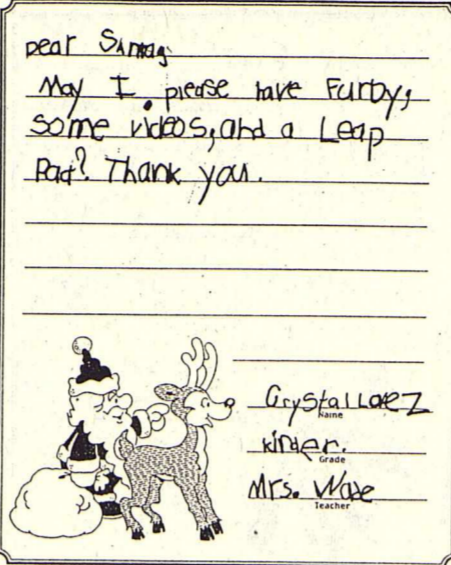 Dear Santa,
May I please have Furby,
some videos, and a Leap
Pad? Thank you.
Crystal Lopez
Name
Kinder.
Grade
Mrs. Wade
Teacher